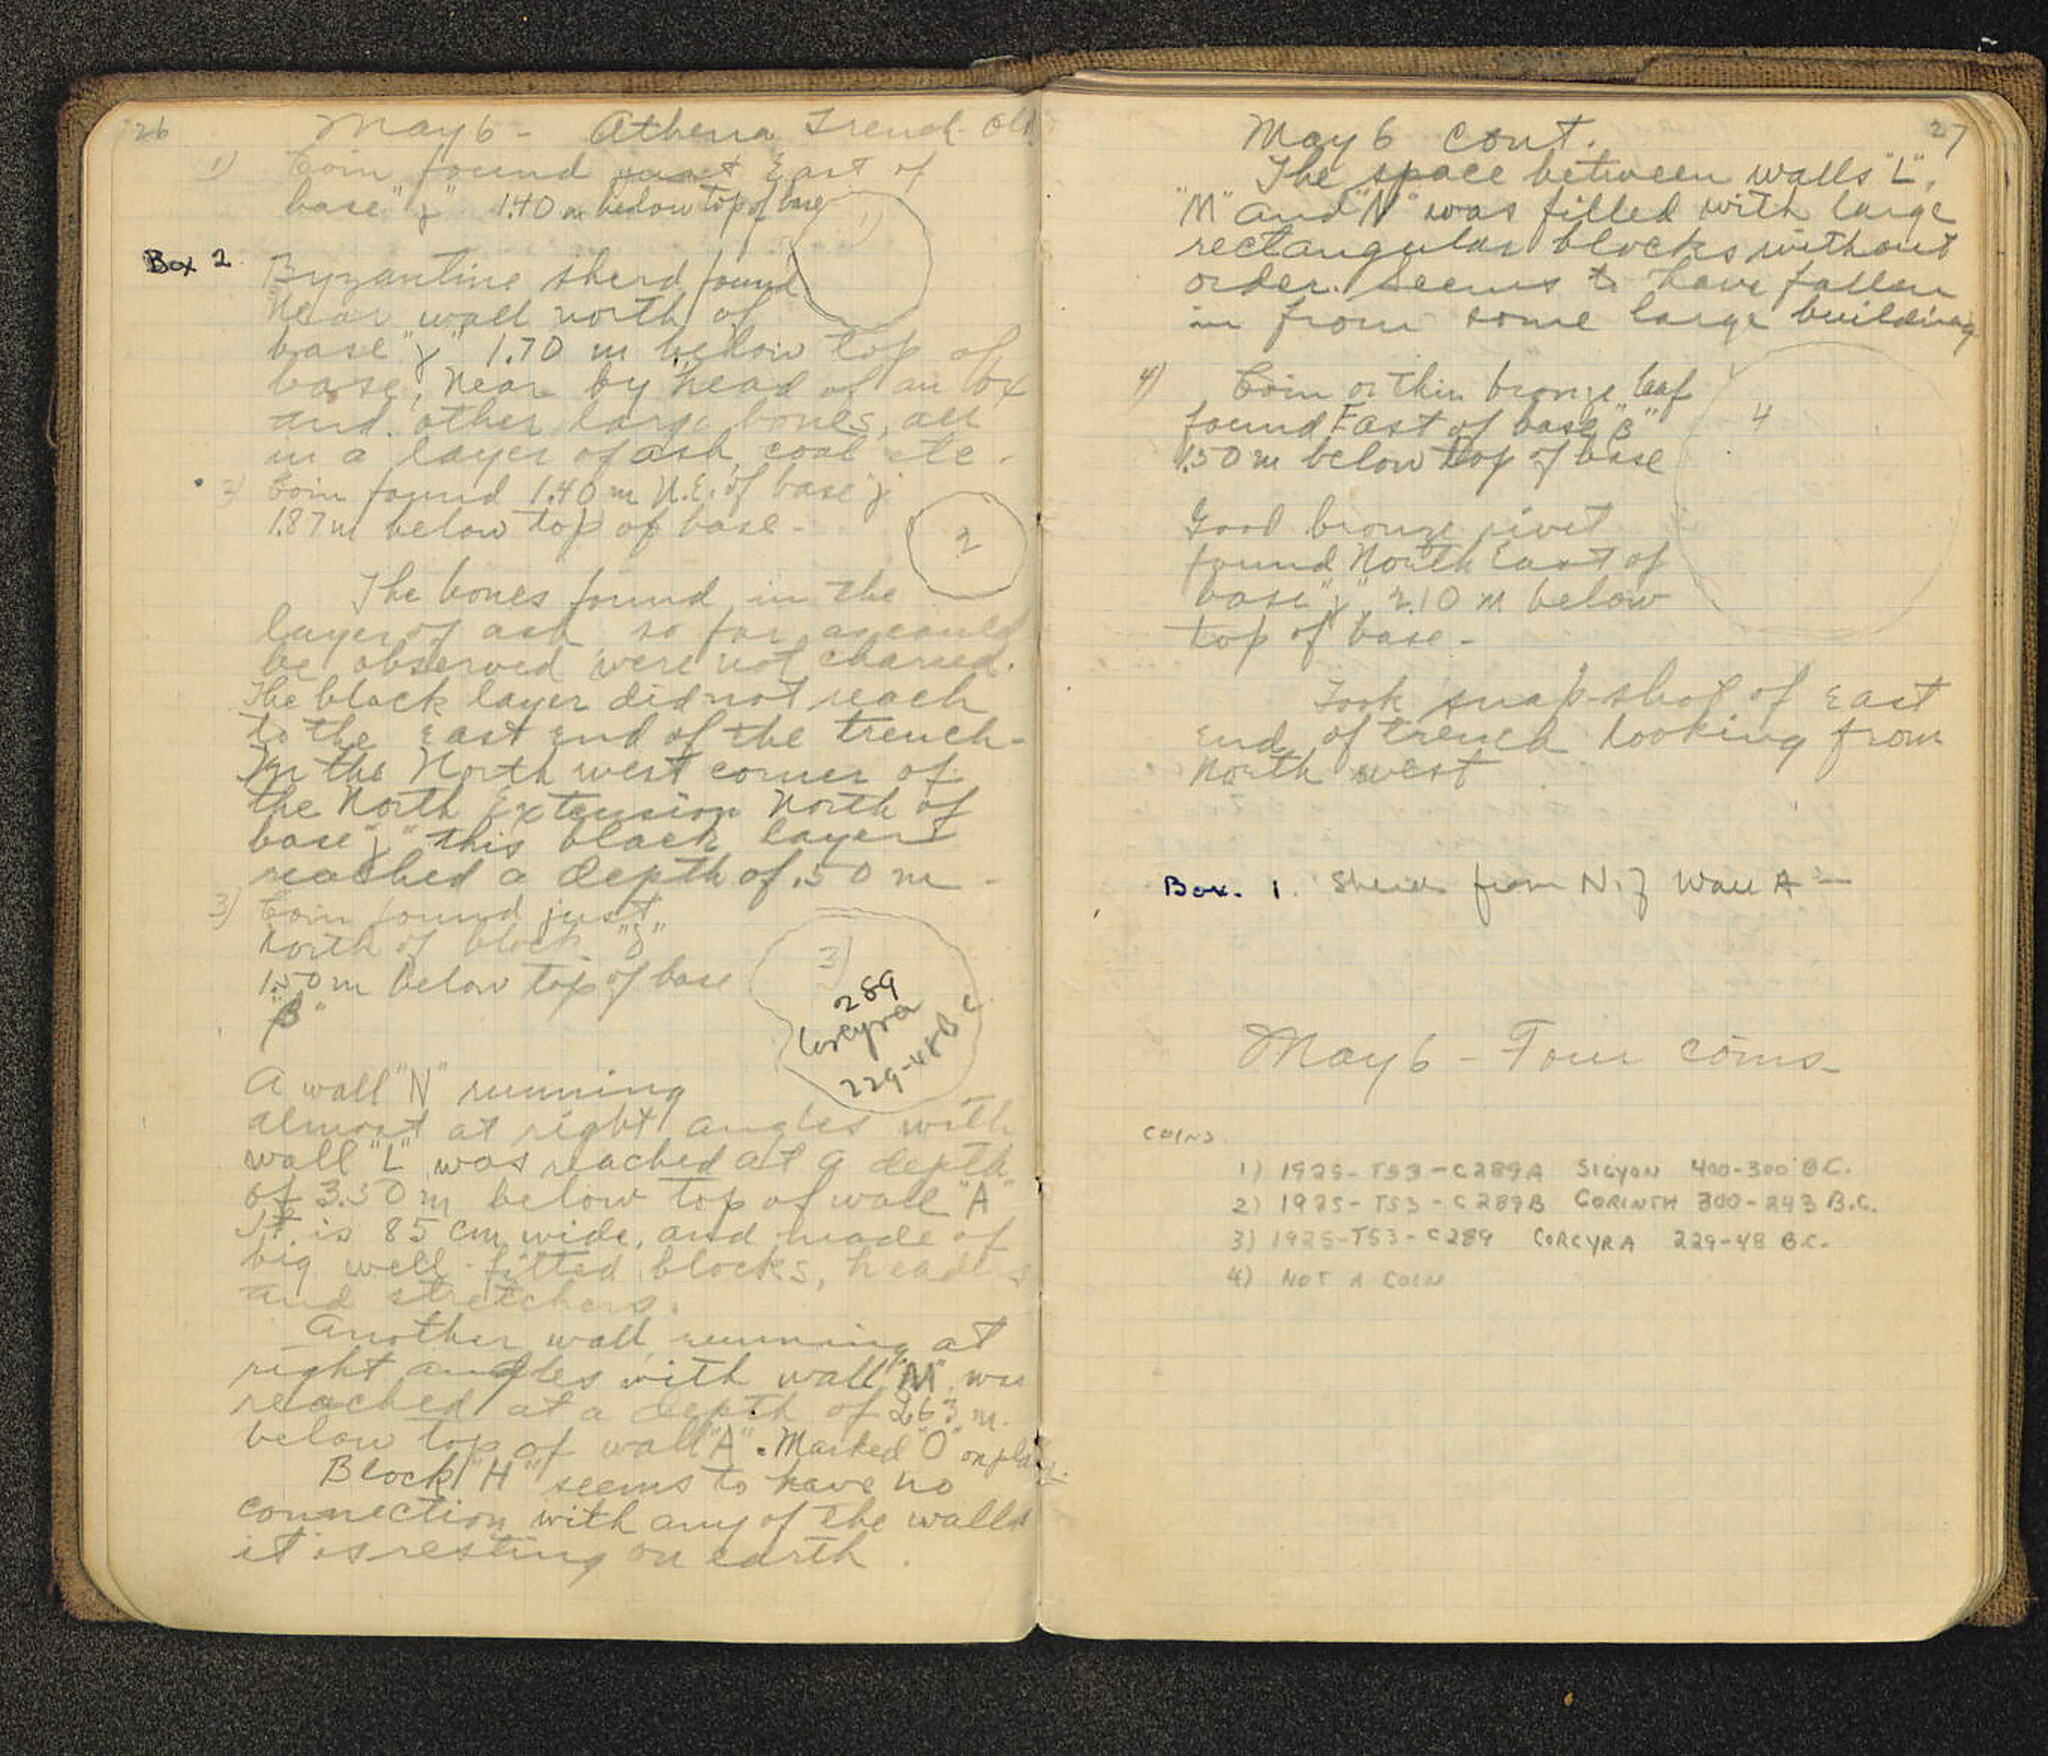 26
May 6 - Athena Trench
1) Coin found just East of
base "γ" 1.40 m below top of base
1)
Box 2
Byzantine sherd found
near wall north of
base "γ" 1.70 m below top of
base, near by head of an ox
and other large bones, all
in a layer of ash, coal etc.
2) Coin found 1.40 m N.E. of base "γ"
1.87 m below top of base -
2
The bones found in the
layer of ash so far as could
be observed were not charred.
The black layer did not reach
to the East End of the trench -
In the North west corner of
the North Extension North of
base "γ" this black layer
reached a depth of .50 m -
3) Coin found just
North of block
1.50 m below top of base
"β"
3)
289
Corcyra
229-48 B C
A wall "N" running
almost at right angles with
wall "L" was reached at a depth
of 3.50 m below top of wall "A"
It is 85 cm wide, and made of
big well-fitted blocks, headers
and stretchers.
Another wall running at
right angles with wall "M" was
reached at a depth of 2.63 m.
below top of wall "A". Marked "O" on plan.
Block "H" seems to have no
connection with any of the walls
it is resting on earth.
27
May 6 cont.
The space between walls "L",
"M" and "N" was filled with large
rectangular blocks without
order. Seems to have fallen
in from some large building
4) Coin or thin bronze leaf
found East of base "β"
1.50 m below top of base
4
Good bronze rivet
found North East of
base "γ", 2.10 m below
top of base -
Took snap-shot of East
End of trench looking from
North west
Box. 1. Sherds from N. of Wall A -
May 6 - Four coins -
COINS
1) 1925-TS3-C289A SICYON 400-300 B.C.
2) 1925-TS3-C289B CORINTH 300-243 B.C.
3) 1925-TS3-C289 CORCYRA 229-48 B.C.
4) NOT A COIN